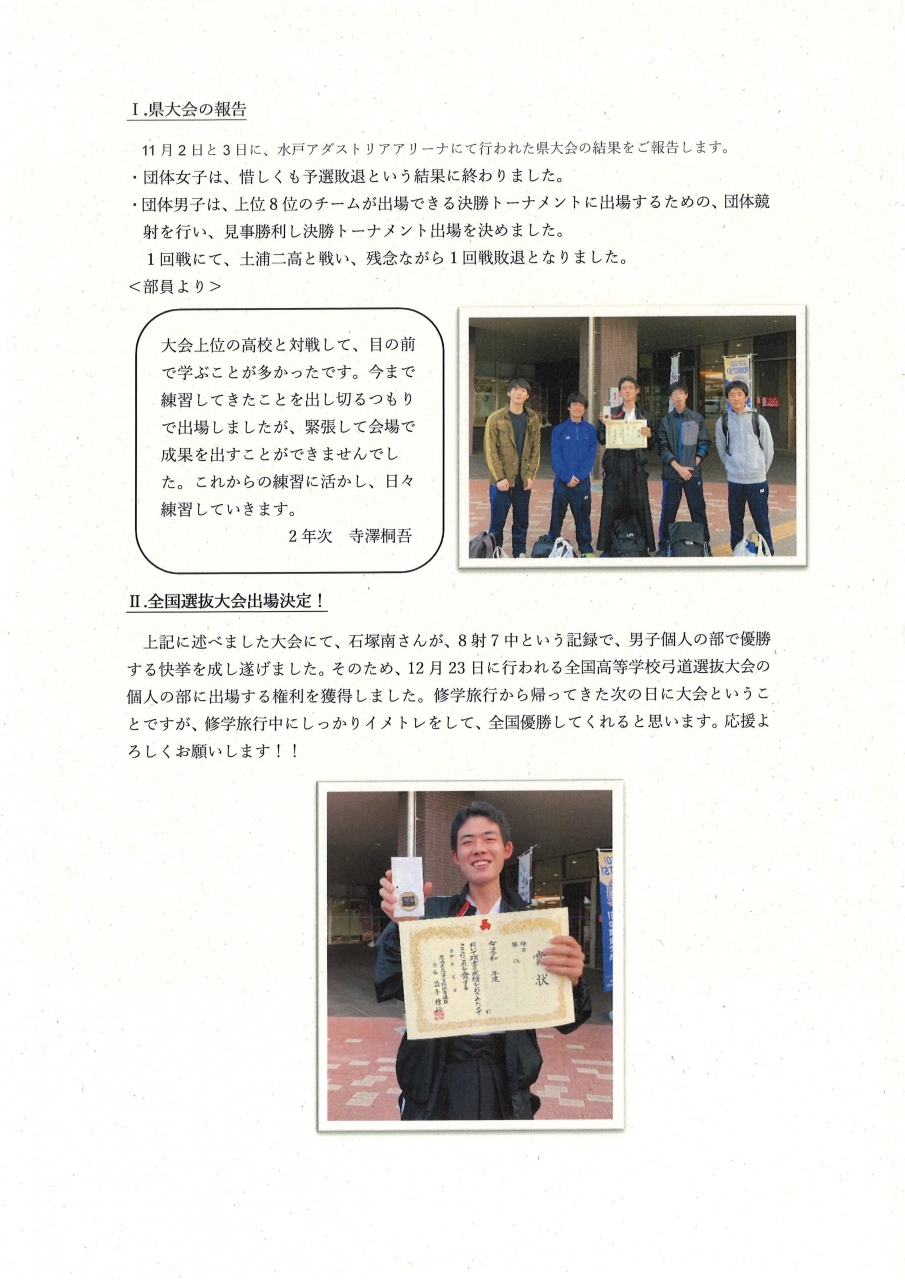 Ⅰ.県大会の報告
11月2日と3日に、水戸アダストリアアリーナにて行われた県大会の結果をご報告します。
・団体女子は、惜しくも予選敗退という結果に終わりました。
・団体男子は、上位8位のチームが出場できる決勝トーナメントに出場するための、団体競
射を行い、見事勝利し決勝トーナメント出場を決めました。
１回戦にて、土浦二高と戦い、残念ながら１回戦敗退となりました。
＜部員より＞
大会上位の高校と対戦して、目の前
で学ぶことが多かったです。今まで
練習してきたことを出し切るつもり
で出場しましたが、緊張して会場で
成果を出すことができませんでし
た。これからの練習に活かし、日々
練習していきます。
2年次　寺澤桐吾
Ⅱ.全国選抜大会出場決定！
上記に述べました大会にて、石塚南さんが、8射7中という記録で、男子個人の部で優勝
する快挙を成し遂げました。そのため、12月23日に行われる全国高等学校弓道選抜大会の
個人の部に出場する権利を獲得しました。修学旅行から帰ってきた次の日に大会というこ
とですが、修学旅行中にしっかりイメトレをして、全国優勝してくれると思います。応援よ
ろしくお願いします！！
賞状